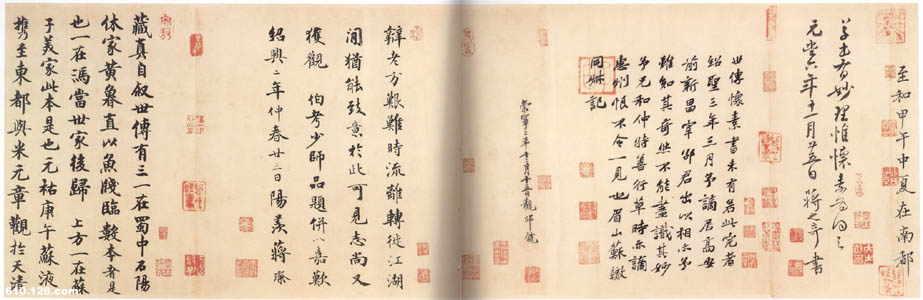 至和甲午中夏在南都
草書有妙理惟懷素為得之
元六年十月廿五日蔣之奇書
世傳懷素書未有若此完者
紹聖三年三月予謫居高安
前新昌宰邵君出以相示予
雖知其奇然不能盡識其妙
予兄和仲特善行草時亦謫
惠州恨不令一見也眉山蘇轍
同叔記
崇寧二年十月十五日觀邵
辯老方艱難時流離轉徙江湖
間猶能致意於此可見志尚又
獲觀 伯考少師品題併以嘉歎
紹興二年仲春廿二日陽羨蔣璨
藏真自叙世傳有三一在蜀中石陽
休家黃魯直以魚牋臨數本者是
也一在馮當世家後歸 上方一在蘇
子美家此本是也元祐庚午蘇液
攜至東都與米元章觀於天清
610.126.com